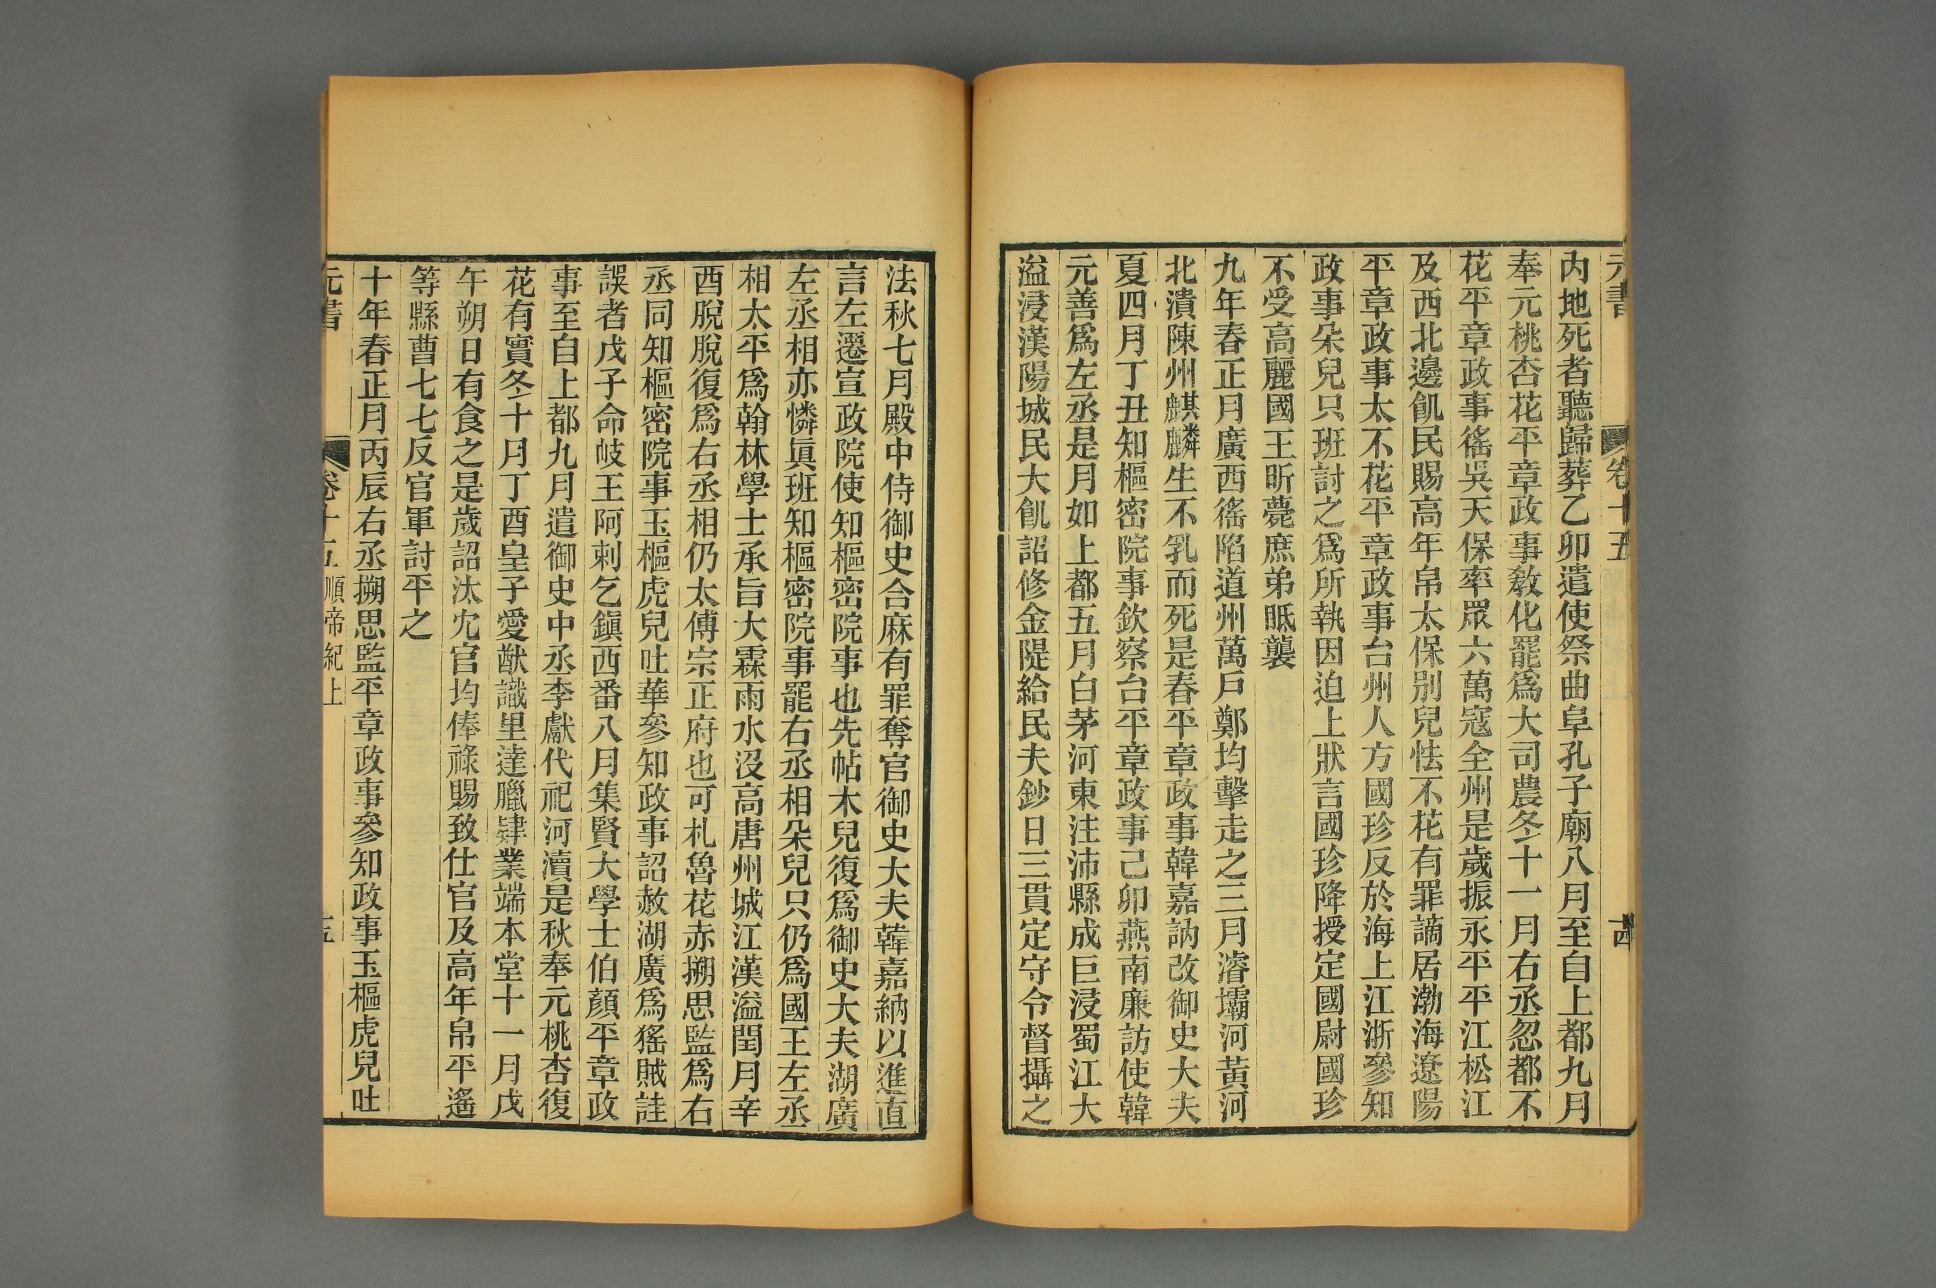 元書
卷十五
十四
內地死者聽歸葬乙卯遣使祭曲阜孔子廟八月至自上都九月
奉元桃杏花平章政事敎化罷爲大司農冬十一月右丞忽都不
花平章政事徭吳天保率眾六萬寇全州是歲振永平平江松江
及西北邊飢民賜高年帛太保別兒怯不花有罪謫居渤海遼陽
平章政事太不花平章政事台州人方國珍反於海上江浙參知
政事朵兒只班討之爲所執因迫上狀言國珍降授定國尉國珍
不受高麗國王昕薨庶弟眂襲
九年春正月廣西徭陷道州萬戶鄭均擊走之三月濬壩河黃河
北潰陳州麒麟生不乳而死是春平章政事韓嘉訥改御史大夫
夏四月丁丑知樞密院事欽察台平章政事己卯燕南廉訪使韓
元善爲左丞是月如上都五月白茅河東注沛縣成巨浸蜀江大
溢浸漢陽城民大飢詔修金隄給民夫鈔日三貫定守令督攝之
法秋七月殿中侍御史合麻有罪奪官御史大夫韓嘉納以進直
言左遷宣政院使知樞密院事也先帖木兒復爲御史大夫湖廣
左丞相亦憐眞班知樞密院事罷右丞相朵兒只仍爲國王左丞
相太平爲翰林學士承旨大霖雨水沒高唐州城江漢溢閏月辛
酉脫脫復爲右丞相仍太傅宗正府也可札魯花赤搠思監爲右
丞同知樞密院事玉樞虎兒吐華參知政事詔赦湖廣爲猺賊詿
誤者戊子命岐王阿剌乞鎭西番八月集賢大學士伯顏平章政
事至自上都九月遣御史中丞李獻代祀河瀆是秋奉元桃杏復
花有實冬十月丁酉皇子愛猷識里達臘肄業端本堂十一月戊
午朔日有食之是歲詔汰宂官均俸祿賜致仕官及高年帛平遙
等縣曹七七反官軍討平之
十年春正月丙辰右丞搠思監平章政事參知政事玉樞虎兒吐
元書
卷十五 順帝紀上
十五